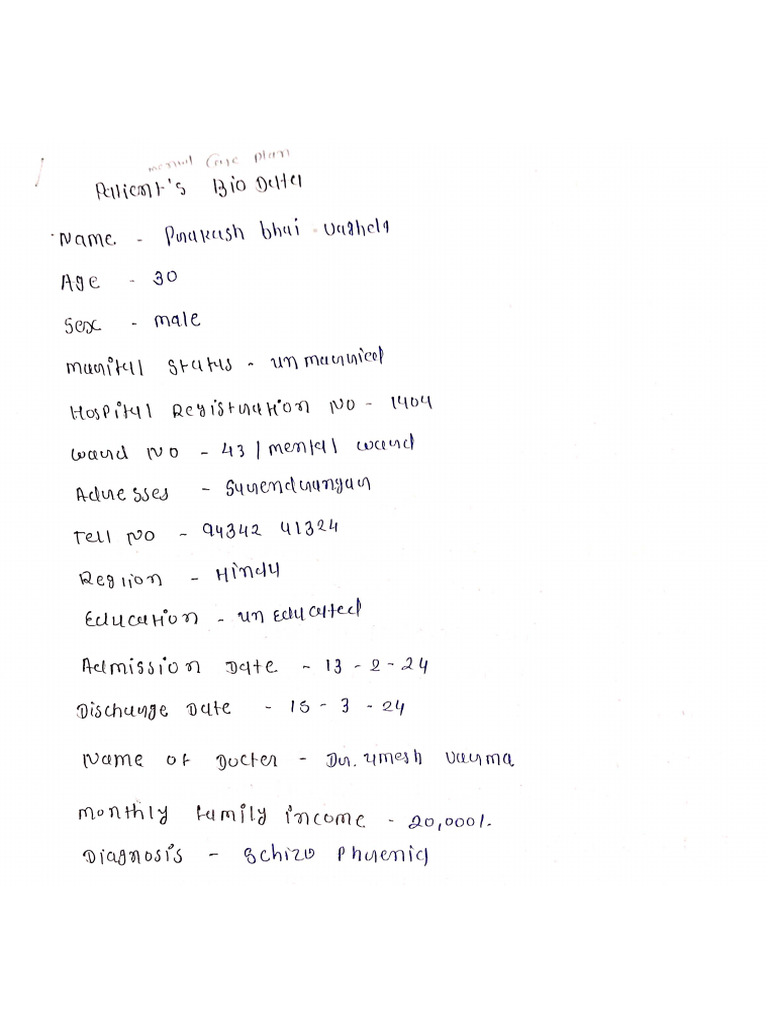 mental Case plan
Patient's Bio Data
Name - Prakash bhai vaghela
Age - 30
Sex - male
Marital Status - unmarried
Hospital Registration No - 1404
Ward No - 43 / mental ward
Adresses - Surendrangar
Tell No - 94342 41324
Reglion - Hindu
Education - un Educated
Admission Date - 13-2-24
Discharge Date - 15-3-24
Name of Docter - Dr. Umesh Varma
Monthly family income - 20,000/.
Diagnosis - Schizo Phrenia